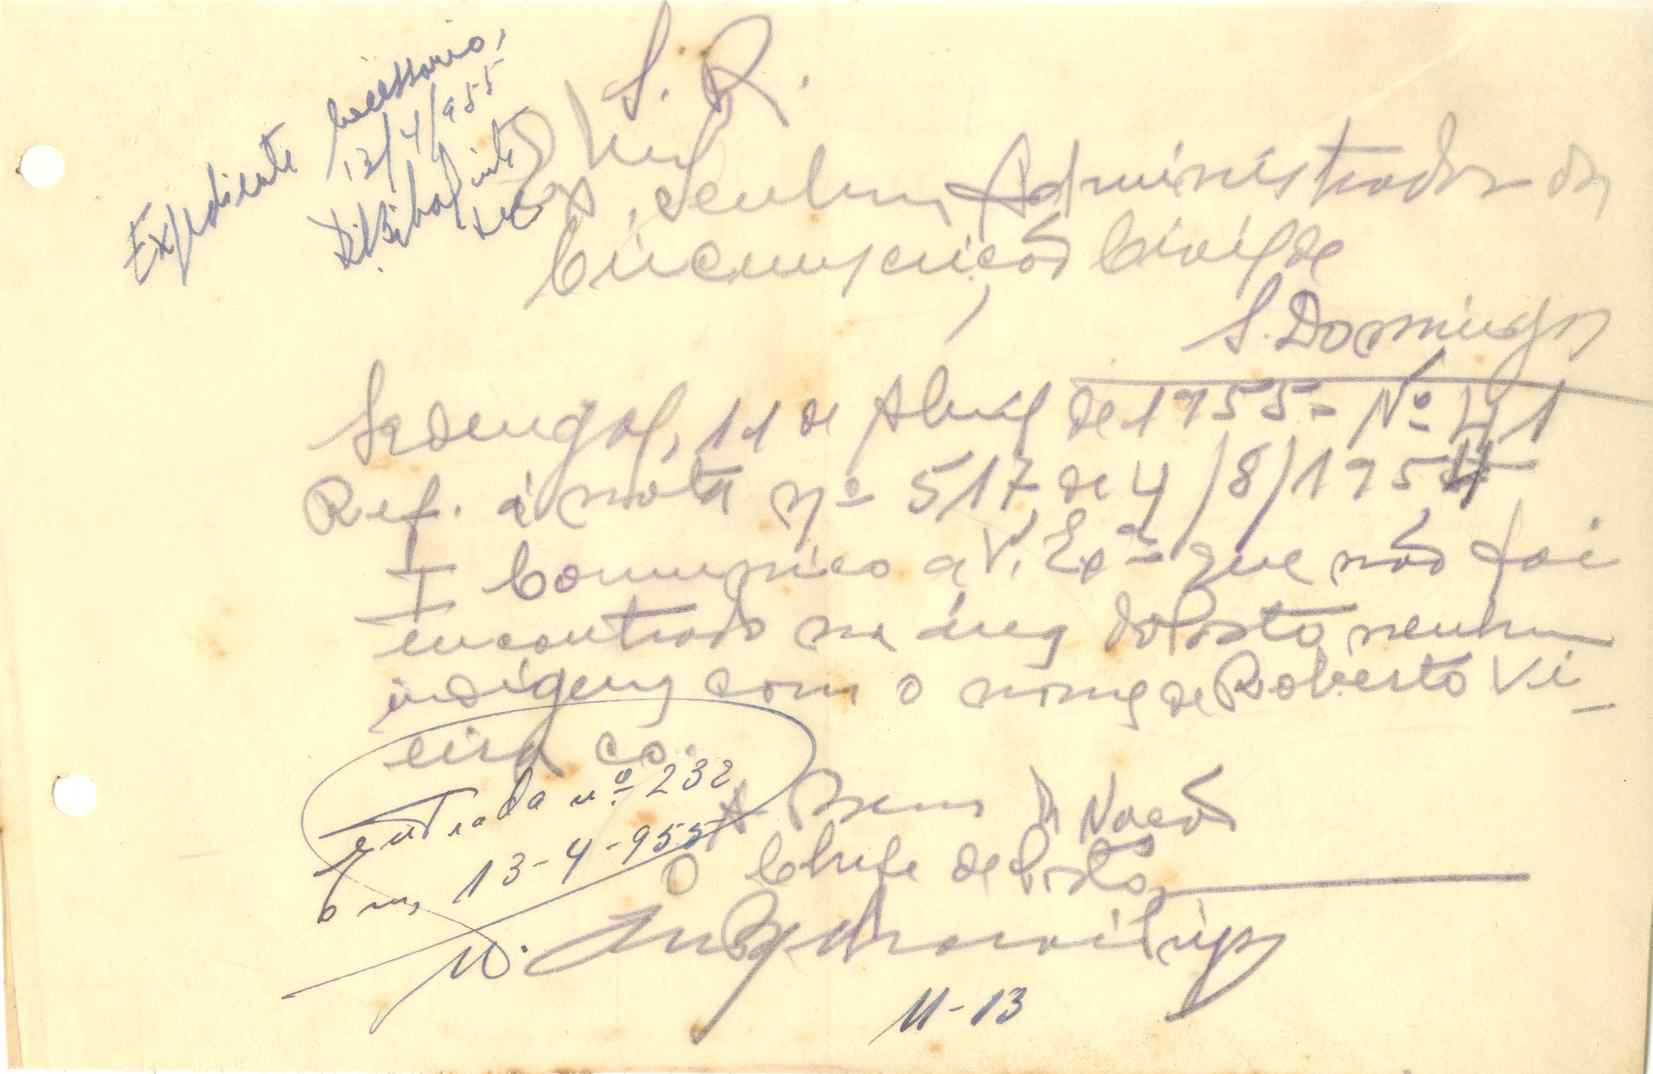 Expediente necessário,
12/4/955
S. R.
Senhor Administrador da
Circunscrição Civil de
S. Domingos
Sedengal, 11 de Abril de 1955 - Nº 41
Ref. á nota nº 517 de 4/8/1954
I Comunico a V. Exª que não foi
encontrado na área do Posto nenhum
indígena com o nome de Roberto Vi-
eira Có.
A Bem da Nação
O Chefe de Posto,
entrada nº 232
em, 13-4-955
11-13